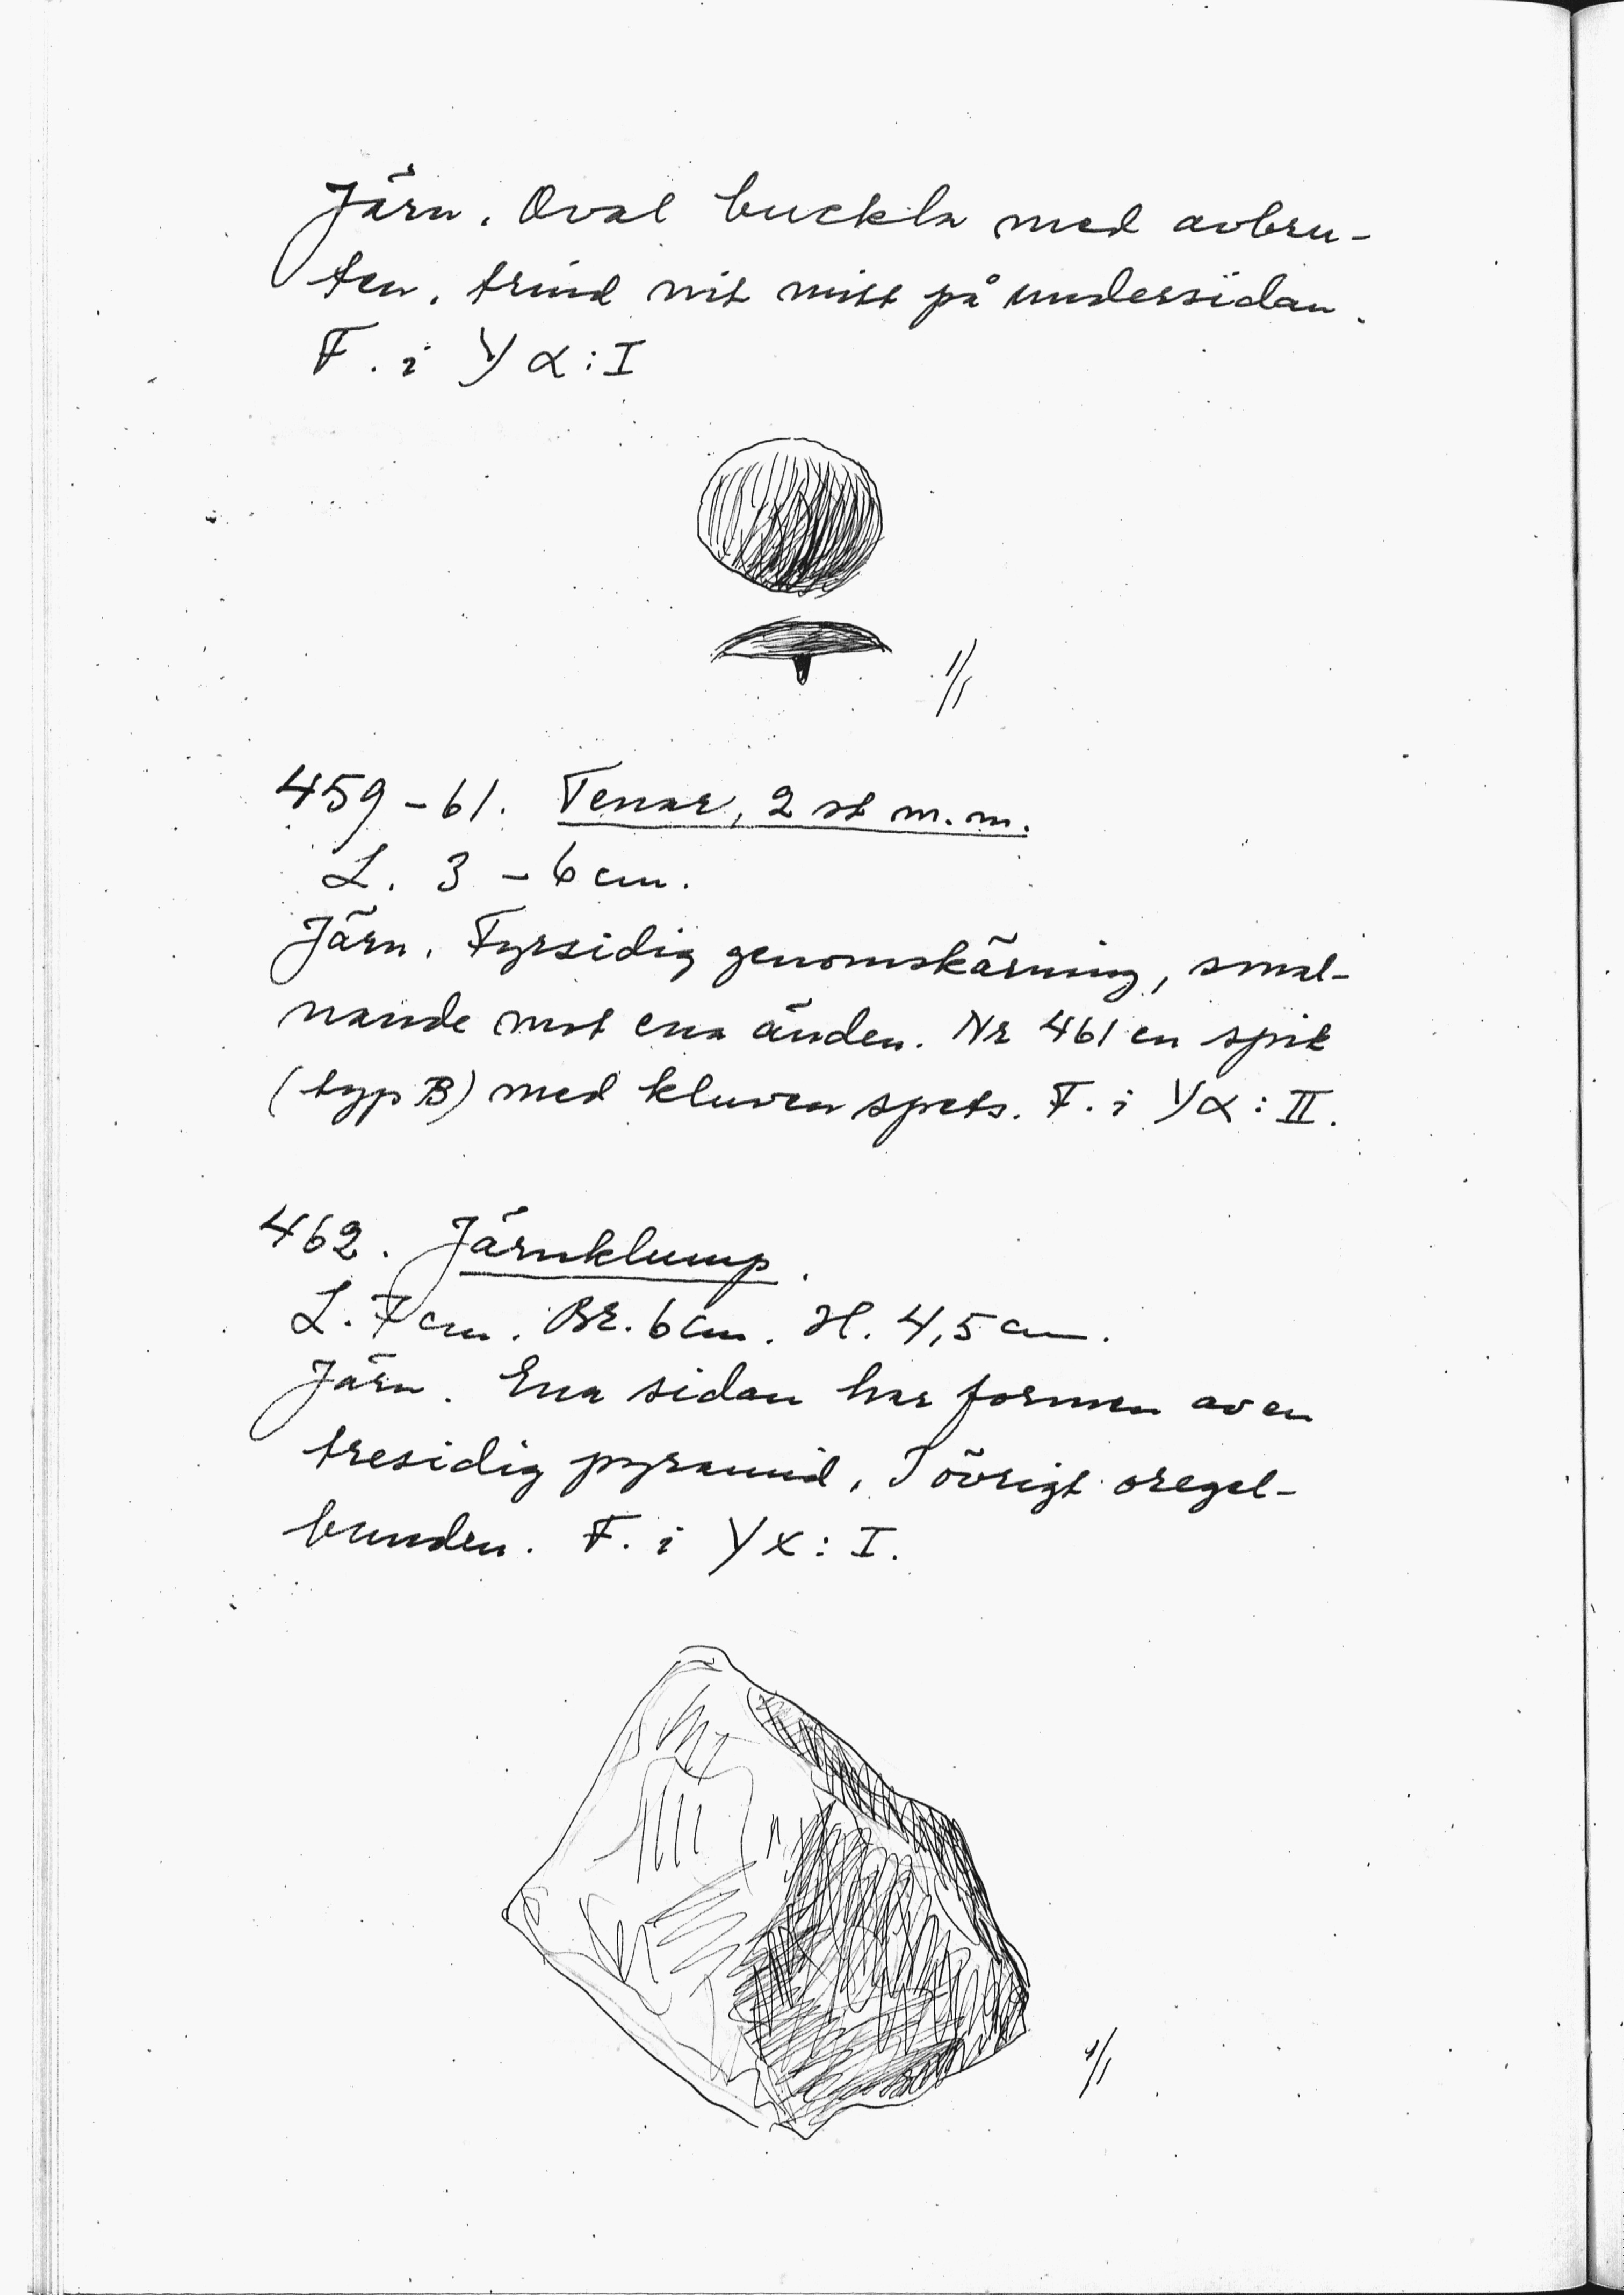 Järn. Oval buckla med avbru-
ten, trind nit mitt på undersidan.
F. i Yα:I
1/1
459-61. Tenar, 2 st m.m.
L. 3 - 6 cm.
Järn. Fyrsidig genomskärning, smal-
nande mot ena änden. Nr 461 en spik
(typ B) med kluven spets. F. i Yα: II.
462. Järnklump.
L. 7 cm. Br. 6 cm. H. 4,5 cm.
Järn. Ena sidan har formen av en
tresidig pyramid. I övrigt oregel-
bunden. F. i YX: I.
1/1